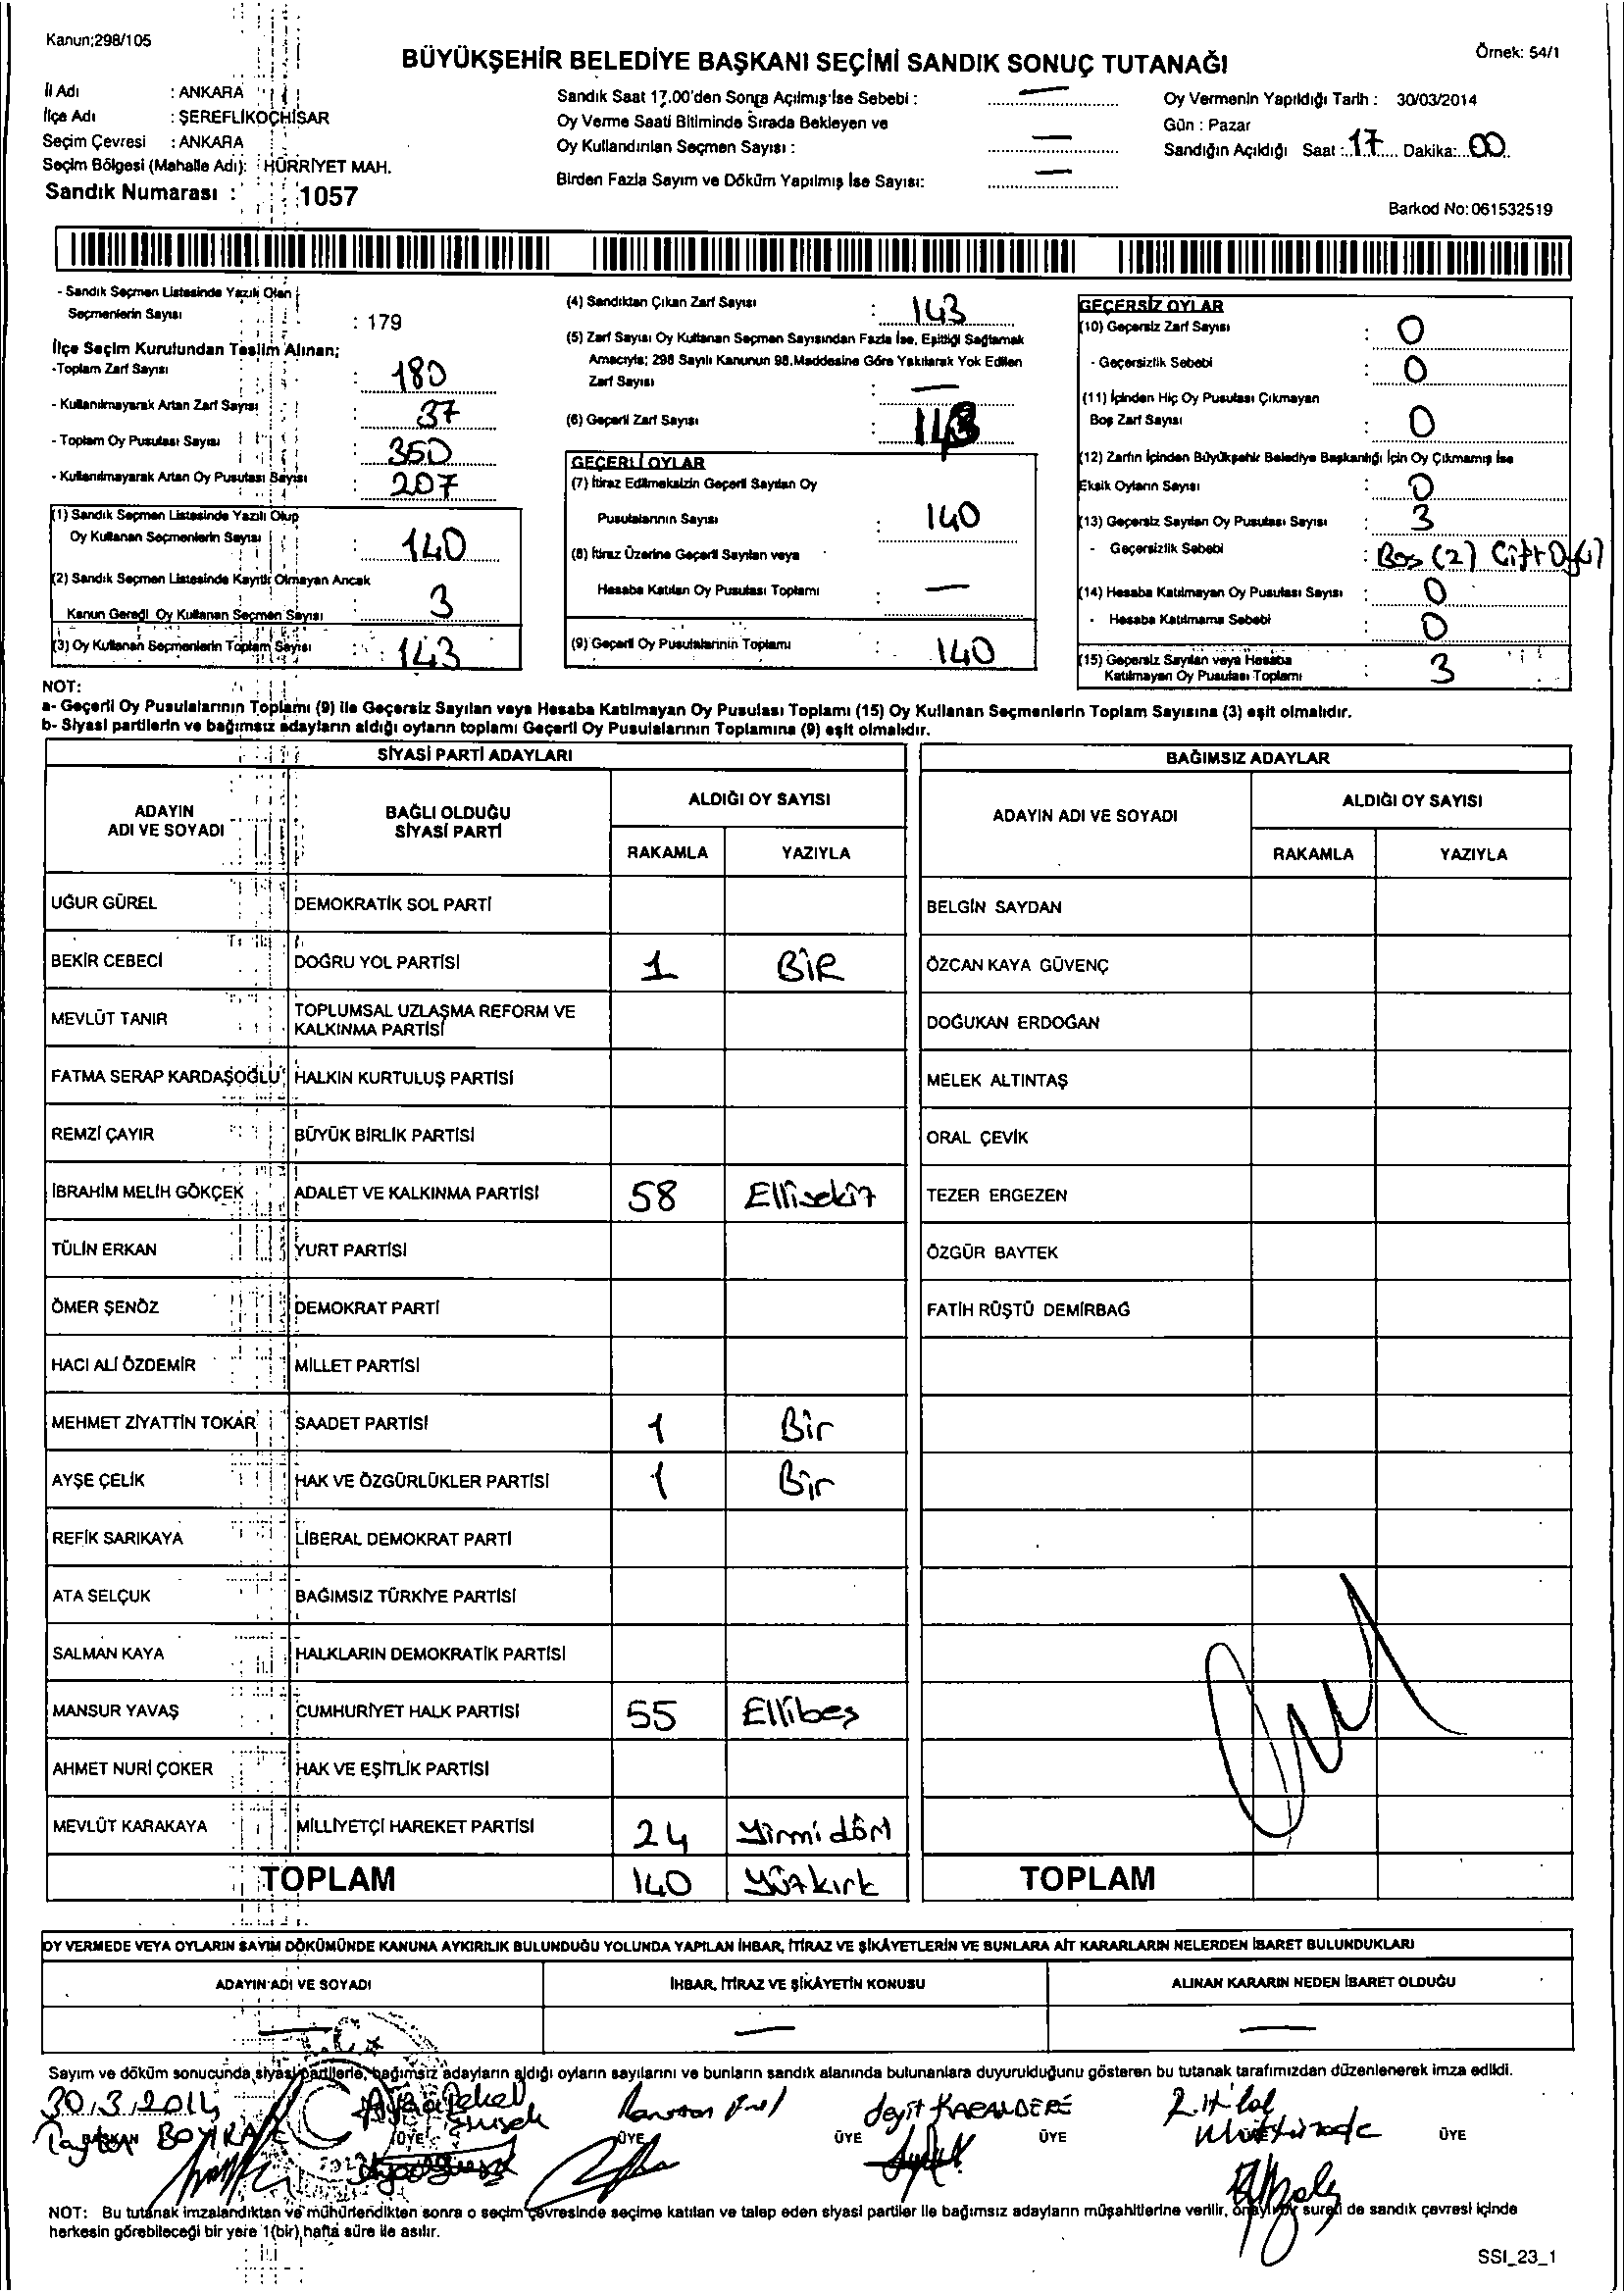 Kanun;298/105
BÜYÜKŞEHİR BELEDİYE BAŞKANI SEÇİMİ SANDIK SONUÇ TUTANAĞI
Örnek: 54/1
İl Adı : ANKARA
İlçe Adı : ŞEREFLİKOÇHİSAR
Seçim Çevresi : ANKARA
Seçim Bölgesi (Mahalle Adı): HÜRRİYET MAH.
Sandık Numarası : 1057
Sandık Saat 17.00'den Sonra Açılmış İse Sebebi : —
Oy Verme Saati Bitiminde Sırada Bekleyen ve
Oy Kullandırılan Seçmen Sayısı : —
Birden Fazla Sayım ve Döküm Yapılmış İse Sayısı: —
Oy Vermenin Yapıldığı Tarih : 30/03/2014
Gün : Pazar
Sandığın Açıldığı Saat : 17 Dakika: 00
Barkod No: 061532519
- Sandık Seçmen Listesinde Yazılı Olan
Seçmenlerin Sayısı : 179
İlçe Seçim Kurulundan Teslim Alınan;
-Toplam Zarf Sayısı : 180
- Kullanılmayarak Artan Zarf Sayısı : 37
- Toplam Oy Pusulası Sayısı : 350
- Kullanılmayarak Artan Oy Pusulası Sayısı : 207
(1) Sandık Seçmen Listesinde Yazılı Olup
Oy Kullanan Seçmenlerin Sayısı : 140
(2) Sandık Seçmen Listesinde Kayıtlı Olmayan Ancak
Kanun Gereği Oy Kullanan Seçmen Sayısı 3
(3) Oy Kullanan Seçmenlerin Toplam Sayısı : 143
(4) Sandıktan Çıkan Zarf Sayısı : 143
(5) Zarf Sayısı Oy Kullanan Seçmen Sayısından Fazla İse, Eşitliği Sağlamak
Amacıyla; 298 Sayılı Kanunun 98.Maddesine Göre Yakılarak Yok Edilen
Zarf Sayısı : —
(6) Geçerli Zarf Sayısı : 143
GEÇERLİ OYLAR
(7) İtiraz Edilmeksizin Geçerli Sayılan Oy
Pusulalarının Sayısı : 140
(8) İtiraz Üzerine Geçerli Sayılan veya
Hesaba Katılan Oy Pusulası Toplamı : —
(9) Geçerli Oy Pusulalarının Toplamı : 140
GEÇERSİZ OYLAR
(10) Geçersiz Zarf Sayısı : 0
- Geçersizlik Sebebi : 0
(11) İçinden Hiç Oy Pusulası Çıkmayan
Boş Zarf Sayısı : 0
(12) Zarfın İçinden Büyükşehir Belediye Başkanlığı İçin Oy Çıkmamış İse
Eksik Oyların Sayısı : 0
(13) Geçersiz Sayılan Oy Pusulası Sayısı : 3
- Geçersizlik Sebebi : Boş (2) Çift Oy (1)
(14) Hesaba Katılmayan Oy Pusulası Sayısı : 0
- Hesaba Katılmama Sebebi : 0
(15) Geçersiz Sayılan veya Hesaba
Katılmayan Oy Pusulası Toplamı : 3
NOT:
a- Geçerli Oy Pusulalarının Toplamı (9) ile Geçersiz Sayılan veya Hesaba Katılmayan Oy Pusulası Toplamı (15) Oy Kullanan Seçmenlerin Toplam Sayısına (3) eşit olmalıdır.
b- Siyasi partilerin ve bağımsız adayların aldığı oyların toplamı Geçerli Oy Pusulalarının Toplamına (9) eşit olmalıdır.
SİYASİ PARTİ ADAYLARI
ADAYIN ADI VE SOYADI
BAĞLI OLDUĞU SİYASİ PARTİ
ALDIĞI OY SAYISI
RAKAMLA YAZIYLA
UĞUR GÜREL DEMOKRATİK SOL PARTİ
BEKİR CEBECİ DOĞRU YOL PARTİSİ 1 BİR
MEVLÜT TANIR TOPLUMSAL UZLAŞMA REFORM VE KALKINMA PARTİSİ
FATMA SERAP KARDAŞOĞLU HALKIN KURTULUŞ PARTİSİ
REMZİ ÇAYIR BÜYÜK BİRLİK PARTİSİ
İBRAHİM MELİH GÖKÇEK ADALET VE KALKINMA PARTİSİ 58 Ellisekiz
TÜLİN ERKAN YURT PARTİSİ
ÖMER ŞENÖZ DEMOKRAT PARTİ
HACI ALİ ÖZDEMİR MİLLET PARTİSİ
MEHMET ZİYATTİN TOKAR SAADET PARTİSİ 1 Bir
AYŞE ÇELİK HAK VE ÖZGÜRLÜKLER PARTİSİ 1 Bir
REFİK SARIKAYA LİBERAL DEMOKRAT PARTİ
ATA SELÇUK BAĞIMSIZ TÜRKİYE PARTİSİ
SALMAN KAYA HALKLARIN DEMOKRATİK PARTİSİ
MANSUR YAVAŞ CUMHURİYET HALK PARTİSİ 55 Ellibeş
AHMET NURİ ÇOKER HAK VE EŞİTLİK PARTİSİ
MEVLÜT KARAKAYA MİLLİYETÇİ HAREKET PARTİSİ 24 Yirmidört
TOPLAM 140 Yüzkırk
BAĞIMSIZ ADAYLAR
ADAYIN ADI VE SOYADI
ALDIĞI OY SAYISI
RAKAMLA YAZIYLA
BELGİN SAYDAN
ÖZCAN KAYA GÜVENÇ
DOĞUKAN ERDOĞAN
MELEK ALTINTAŞ
ORAL ÇEVİK
TEZER ERGEZEN
ÖZGÜR BAYTEK
FATİH RÜŞTÜ DEMİRBAĞ
TOPLAM
OY VERMEDE VEYA OYLARIN SAYIM DÖKÜMÜNDE KANUNA AYKIRILIK BULUNDUĞU YOLUNDA YAPILAN İHBAR, İTİRAZ VE ŞİKÂYETLERİN VE BUNLARA AİT KARARLARIN NELERDEN İBARET BULUNDUKLARI
ADAYIN ADI VE SOYADI İHBAR, İTİRAZ VE ŞİKÂYETİN KONUSU ALINAN KARARIN NEDEN İBARET OLDUĞU
— — —
Sayım ve döküm sonucunda siyasi partilerle, bağımsız adayların aldığı oyların sayılarını ve bunların sandık alanında bulunanlara duyurulduğunu gösteren bu tutanak tarafımızdan düzenlenerek imza edildi.
30.3.2014
BAŞKAN ÜYE ÜYE ÜYE ÜYE ÜYE ÜYE
NOT: Bu tutanak imzalandıktan ve mühürlendikten sonra o seçim çevresinde seçime katılan ve talep eden siyasi partiler ile bağımsız adayların müşahitlerine verilir, onaylı bir sureti de sandık çevresi içinde
herkesin görebileceği bir yere 1(bir) hafta süre ile asılır.
SSI_23_1